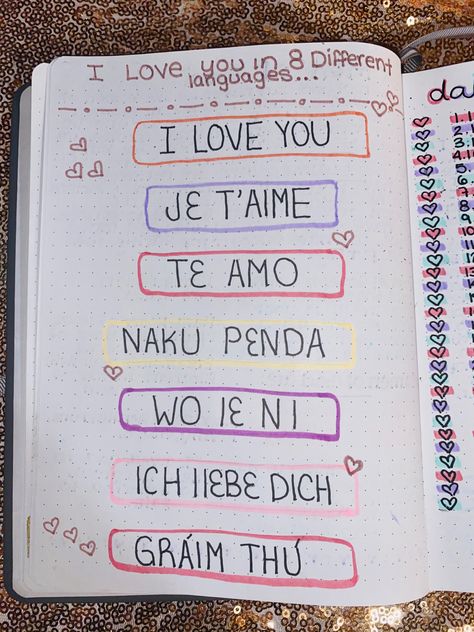 I Love you in 8 Different
languages...
I LOVE YOU
JE T'AIME
TE AMO
NAKU PENDA
WO IE NI
ICH lIEBE DICH
GRÁIM THÚ
da